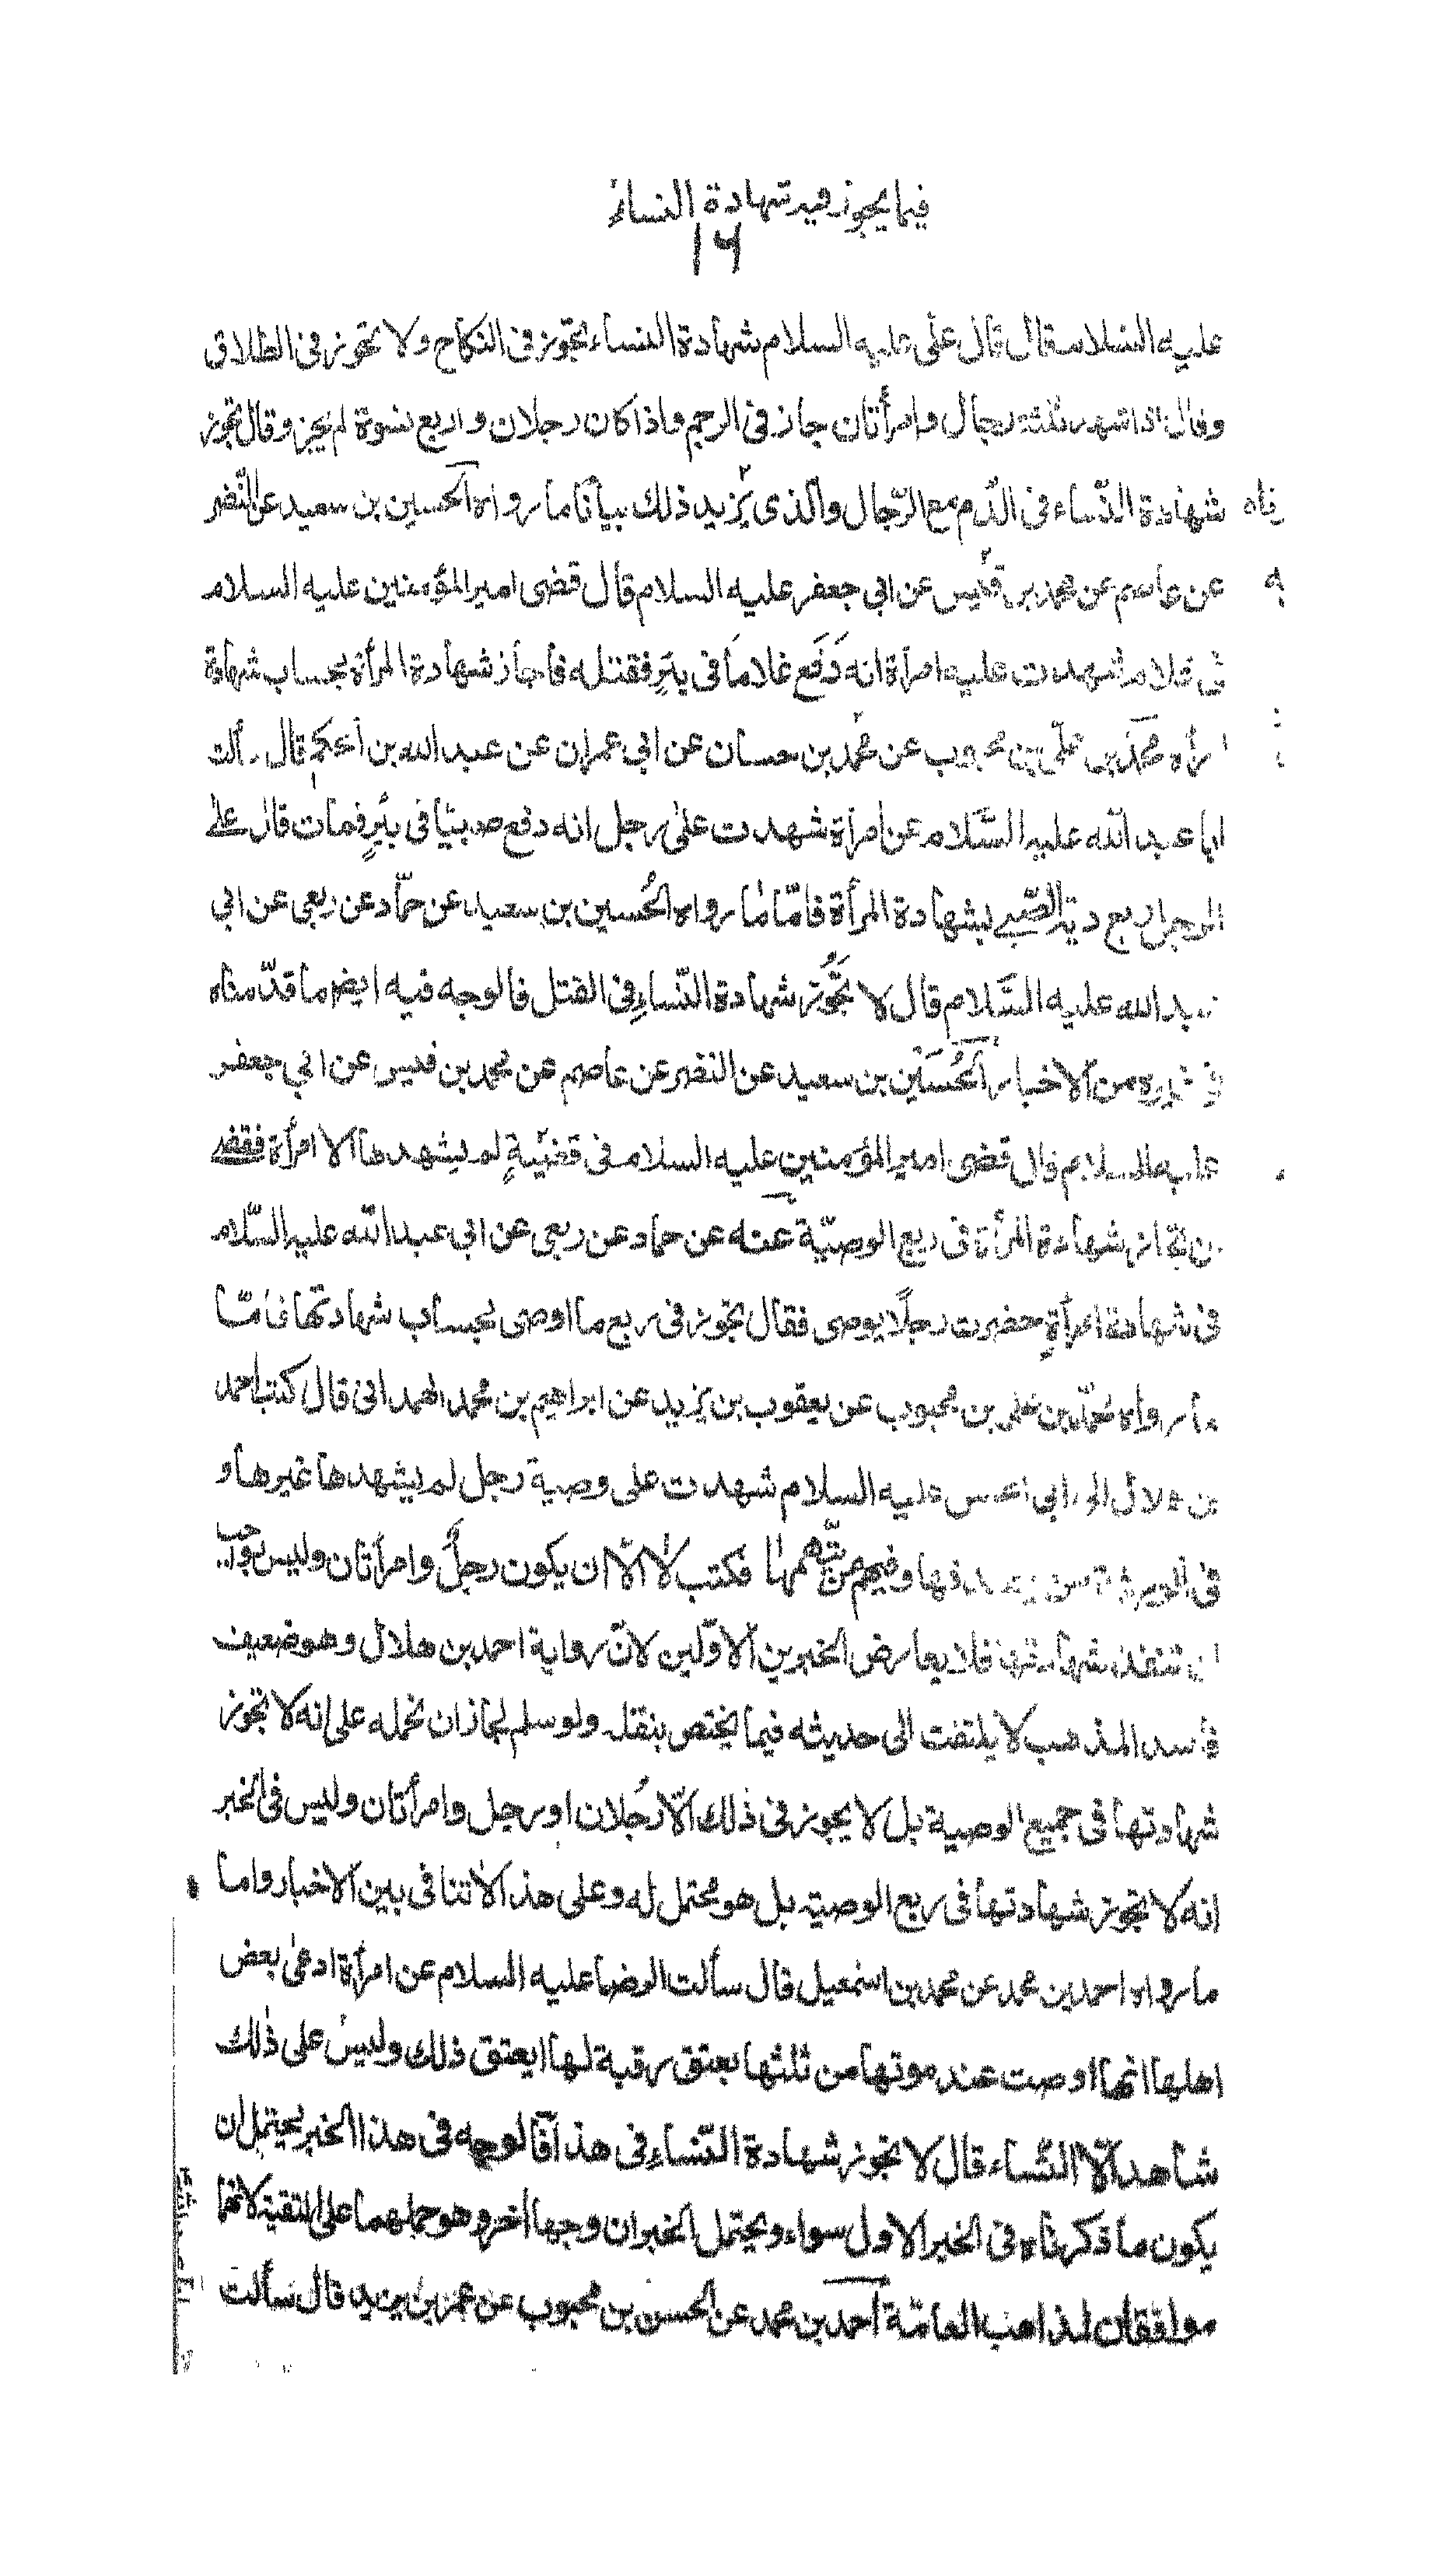 فيما يجوز فيه شهادة النساء
١٦
عليه السلام قال قال على عليه السلام شهادة النساء تجوز فى النكاح ولا تجوز فى الطلاق
وقال اذا شهد ثلثة رجال وامرأتان جاز فى الرجم واذا كان رجلان واربع نسوة لم يجز وقال تجوز
شهادة النّساء فى الدّم مع الرّجال والّذى يزيد ذلك بيانا ما رواه الحسين بن سعيد عن النّضر
عن عاصم عن محمد بن قيس عن ابي جعفر عليه السلام قال قضى امير المؤمنين عليه السلام
فى غلام شهدت عليه امرأة انه دَفَع غلامًا فى بئرٍ فقتله فاجاز شهادة المرأة بحساب شهادة
محمّد بن علىّ بن محبوب عن محمّد بن حسان عن ابي عمران عن عبد الله بن الحكم قال سألت
ابا عبد الله عليه السّلام عن امرأة شهدت على رجل انه دفع صبيّا فى بئرٍ فمات قال على
الرجل ربع دية الصّبي بشهادة المرأة فامّا ما رواه الحُسين بن سعيد عن حمّاد عن ربعي عن ابي
عبد الله عليه السّلام قال لا تَجُوز شهادة النّساءِ فى القتل فالوجه فيه ايضا ما قدّمناه
فى غيره من الاخبار الحُسَيْن بن سعيد عن النضر عن عاصم عن محمد بن قيس عن ابي جعفر
عليه السلام قال قضى امير المؤمنين عليه السلام فى قضيّةٍ لم يشهدها الا امرأة فقضى
ان تجاز شهادة المرأة فى ربع الوصيّة عنه عن حماد عن ربعى عن ابي عبد الله عليه السّلام
فى شهادة امرأةٍ حضرت رجلًا يوصى فقال تجوز فى ربع ما اوصى بحساب شهادتها فامّا
ما رواه محمّد بن على بن محبوب عن يعقوب بن يزيد عن ابراهيم بن محمد الهمدانى قال كتب احمد
بن هلال الى ابى الحسن عليه السلام شهدت على وصية رجل لم يشهدها غيرها و
فى الورثة من يصدقها وفيهم من يتّهمها فكتب لا الّا ان يكون رجلٌ وامرأتان وليس بواجب
ان تنفذ شهادتها فلا يعارض الخبرين الاوّلين لانّ رواية احمد بن هلال وهو ضعيف
فاسد المذهب لا يلتفت الى حديثه فيما يختص بنقله ولو سلم لجاز ان نحمله على انه لا تجوز
شهادتها فى جميع الوصية بل لا يجوز فى ذلك الّا رجُلان او رجل وامرأتان وليس فى الخبر
انه لا تجوز شهادتها فى ربع الوصيّة بل هو محتمل له وعلى هذا لا تنافى بين الاخبار واما
ما رواه احمد بن محمد عن محمد بن اسمعيل قال سألت الرضا عليه السلام عن امرأة ادعى بعض
اهلها انها اوصت عند موتها من ثلثها بعتق رقبة لها ايعتق ذلك وليس على ذلك
شاهد الّا النّساء قال لا تجوز شهادة النّساءِ فى هذا فالوجه فى هذا الخبر يحتمل ان
يكون ما ذكرناه فى الخبر الاول سواء ويحتمل الخبران وجها آخر وهو حملهما على التقية لانهما
موافقان لمذاهب العامّة احمد بن محمد عن الحسن بن محبوب عن عمر بن يزيد قال سألت